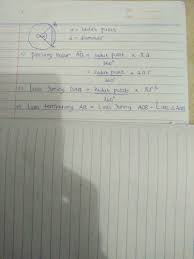 α = sudut pusat
d = diameter
i) panjang busur AB = sudut pusat x π d
360°
= sudut pusat x 2πr
360°
ii) Luas Juring OAB = sudut pusat x πr²
360°
iii) Luas tembereng AB = Luas Juring AOB - Luas Δ AOB